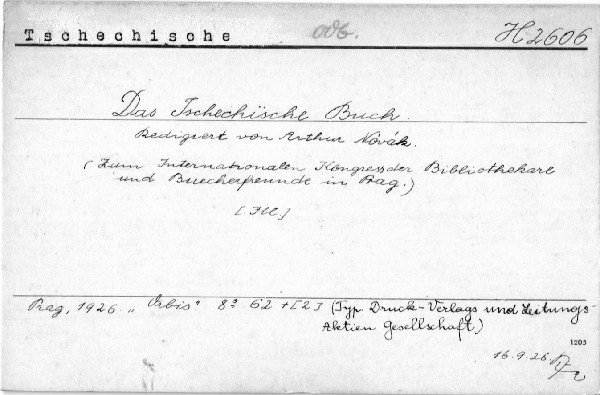 Tschechische 006. H 2606
Das Tschechische Buch.
Redigiert von Arthur Novák.
(Zum Internationalen Kongress der Bibliothekare
und Buecherfreunde in Prag.)
[Ill.]
Prag, 1926. „Orbis" 8º 62 + [2] (Typ. Druck-Verlags und Zeitungs-
Aktien Gesellschaft.)
1205
16.9.26.